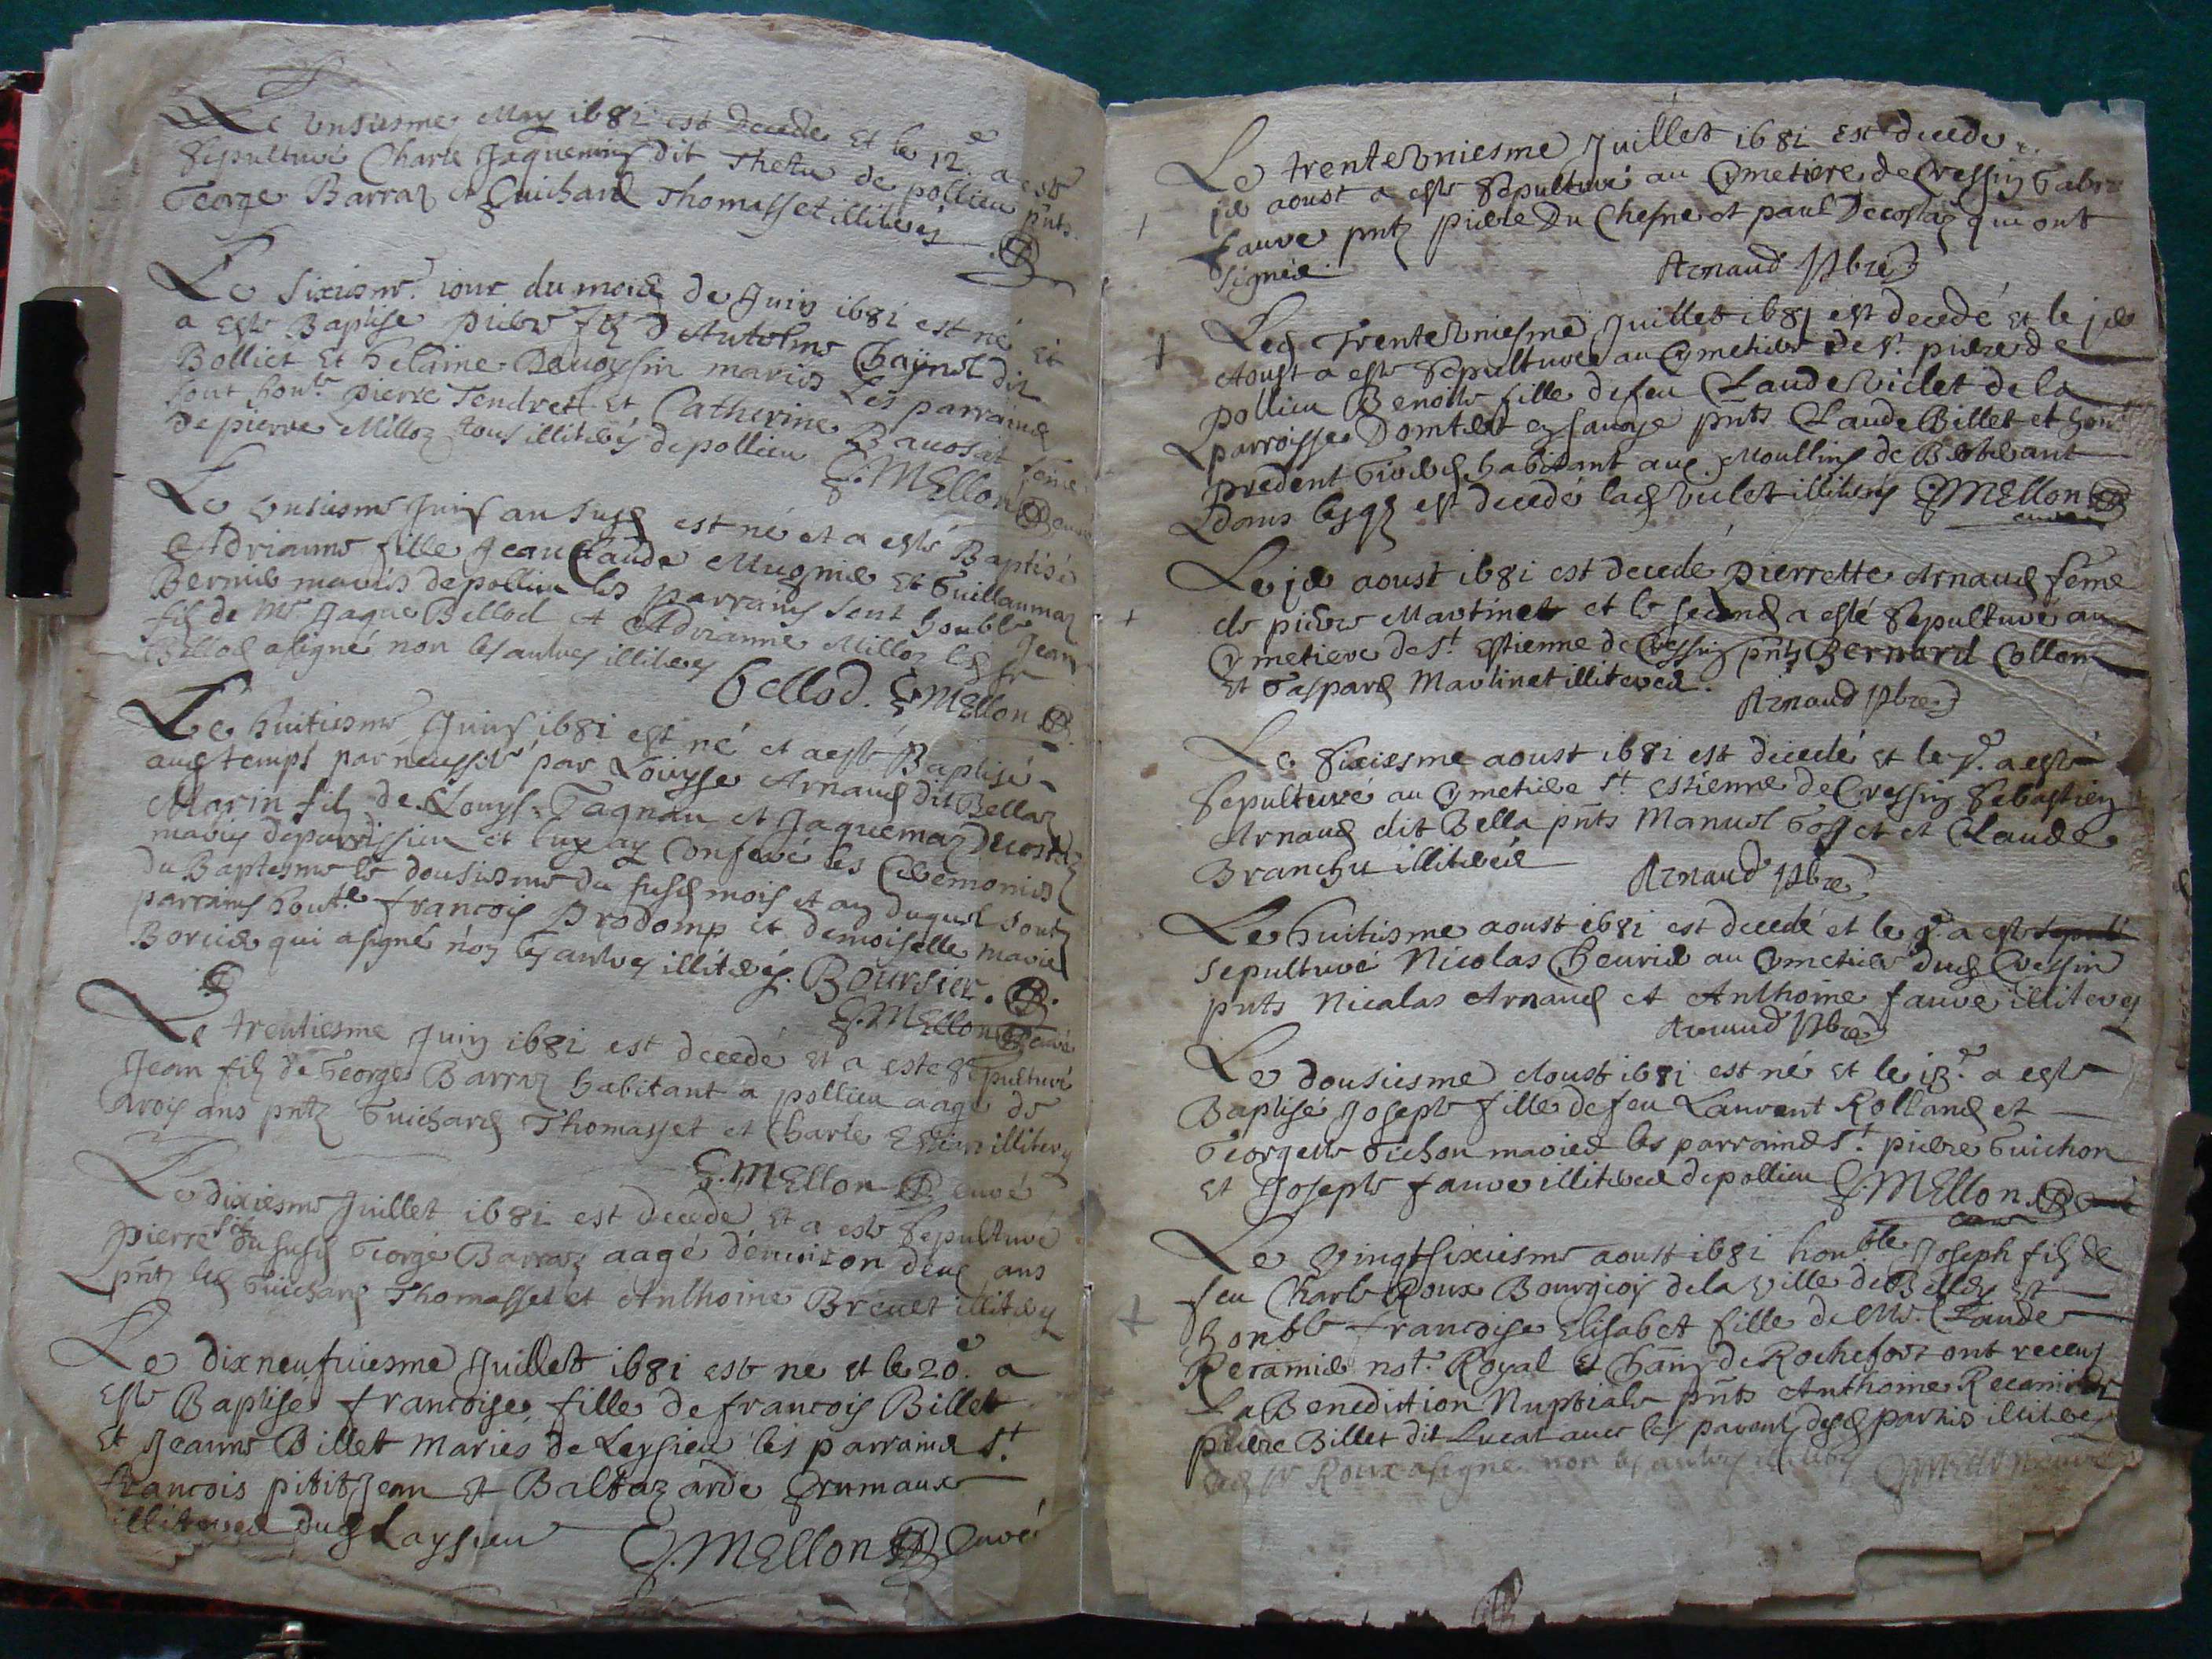 Le unsiesme May 1681 est decede et le 12e a este
sepulturé Charle Jaquemin dit Thetu de pollieu pnts
George Barraz et Guichard Thomasset illiterés
Le sixiesme jour du mois de Juin 1681 est né et
a este Baptise pierre filz d'Antoine Chaynel dit
Bolliet Et helaine Davoysin mariés Les parrains
sont honle pierre Tendret Et Catherine feme
de pierre Milloz tous illiterés de pollieu
E. MEllon curé
Le unsiesme Juin an susd est né et a esté Baptisé
Adrianne fille Jean Claude Mugnier Et Guillaumaz
Bernier mariés de pollieu les parrains sont honble Jean
filz de Mr Jaque Bellod et Adrianne Milloz led sr
Bellod a signé non les autres illiteres
bellod. E. MEllon
Le huitiesme Juin 1681 est né et a esté Baptisé
aud temps par necessité par Louyse Arnaud dit Bellaz
Marin filz de Louys Tagnan et Jaquemaz Decostaz
mariés de parvissieu et luy ay conferé les Ceremonies
du Baptesme le dousiesme du susd mois et an duquel sont
parrains honle francois Prodomp et demoiselle marie
Borcier qui a signé non les autres illiterés. Boursier.
E. MEllon curé
Le trentiesme Juin 1681 est decedé et a este sepulturé
Jean filz de George Barraz habitant a pollieu aagé de
trois ans pntz Guichard Thomasset et Charle illiteres
E. MEllon curé
Le dixiesme Juillet 1681 est decede et a este sepulturé
pierre filz du susd George Barraz aagé d'environ deux ans
pntz led Guichard Thomasset et Anthoine Breuet illiteres
Le dixneufviesme Juillet 1681 est ne et le 20e a
este Baptise francoise fille de francois Billet
Et Jeanne Billet Mariés de Leysieu les parrains st
francois pititJean et Baltazarde Grumaux
illiteres dud Laysieu E. MEllon Curé
Le trenteuniesme Juillet 1681 est decede
je aoust a este sepulturé au Cymetiere de Cressin
fauvre pntz pierre Du Chesne et paul Decostaz qui ont
signés. Arnaud pbre
Led Trenteuniesme Juillet 1681 est decedé et le je
Aoust a este sepulturée au Cymetiere de st pierre de
pollieu Benoite fille de feu Claude violet de la
parroisse Domtest en savoye pnts Claude Billet et hon
predent habitant aux Moullins de
dans lesqz est decedé lad violet illiterés E. MEllon
curé
Le je aoust 1681 est decedé Pierrette Arnaud feme
de pierre Martinet et le second a esté sepulturé au
Cymetiere de st Estienne de Cressin pnts Bernard Collon
Et Gaspard Martinet illiteres. Arnaud pbre
Le sixiesme aoust 1681 est decedé et le 7e a este
sepulturé au Cymetiere st Estienne de Cressin Sebastien
Arnaud dit Bella pnts Manuel Gosset et Claude
Branchu illiterés Arnaud pbre
Le huitiesme aoust 1681 est decedé et le 9e a este
sepulturé Nicolas Cheurier au Cymetiere dud Cressin
pnts Nicolas Arnaud et Anthoine fauvre illiteres
Arnaud pbre
Le dousiesme Aoust 1681 est né et le 13e a este
Baptisé Josephe fille de feu Laurent Rolland et
Georgette Tichon mariés les parrains st pierre Guichon
et Josephe fauvre illiteres de pollieu E. MEllon
curé
Le vingtsixiesme aoust 1681 honble Joseph filz de
feu Charle Roux Bourgeois de la Ville de Belley Et
honble francoise Elisabet fille de Mr. Claude
Recamier not. Royal et Chan de Rochefort ont receu
La Benediction Nuptiale pnts Anthoine Recamier
pierre Billet dit Lucat avec les parents desd parties illiteres
led sr Roux a signe non les autres